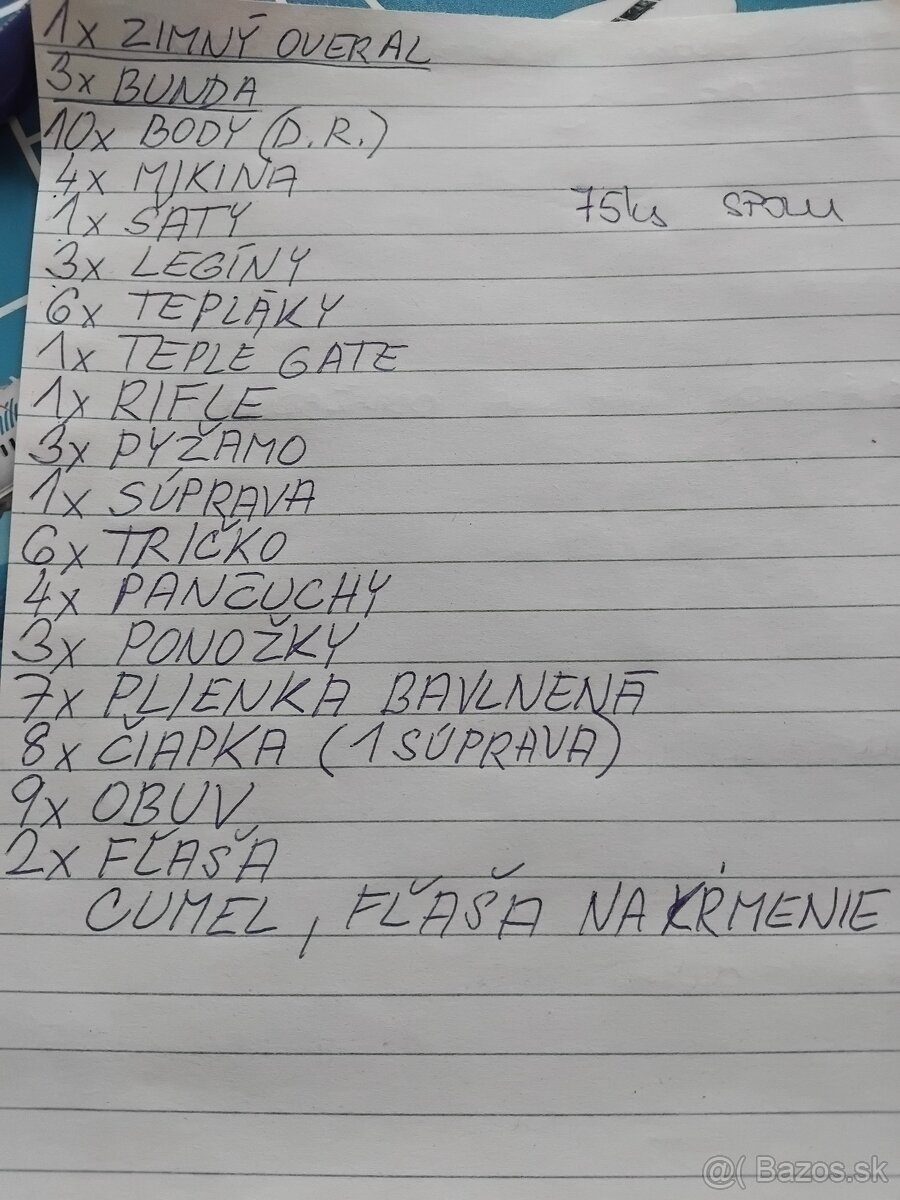 1x ZIMNÝ OVERAL
3x BUNDA
10x BODY (D.R.)
4x MIKINA
1x ŠATY
75ks SPOLU
3x LEGÍNY
6x TEPLÁKY
1x TEPLE GATE
1x RIFLE
3x PYŽAMO
1x SÚPRAVA
6x TRIČKO
4x PANČUCHY
3x PONOŽKY
7x PLIENKA BAVLNENÁ
8x ČIAPKA (1 SÚPRAVA)
9x OBUV
2x FĽAŠA
CUMEL, FĽAŠA NA KŔMENIE
@( Bazos.sk